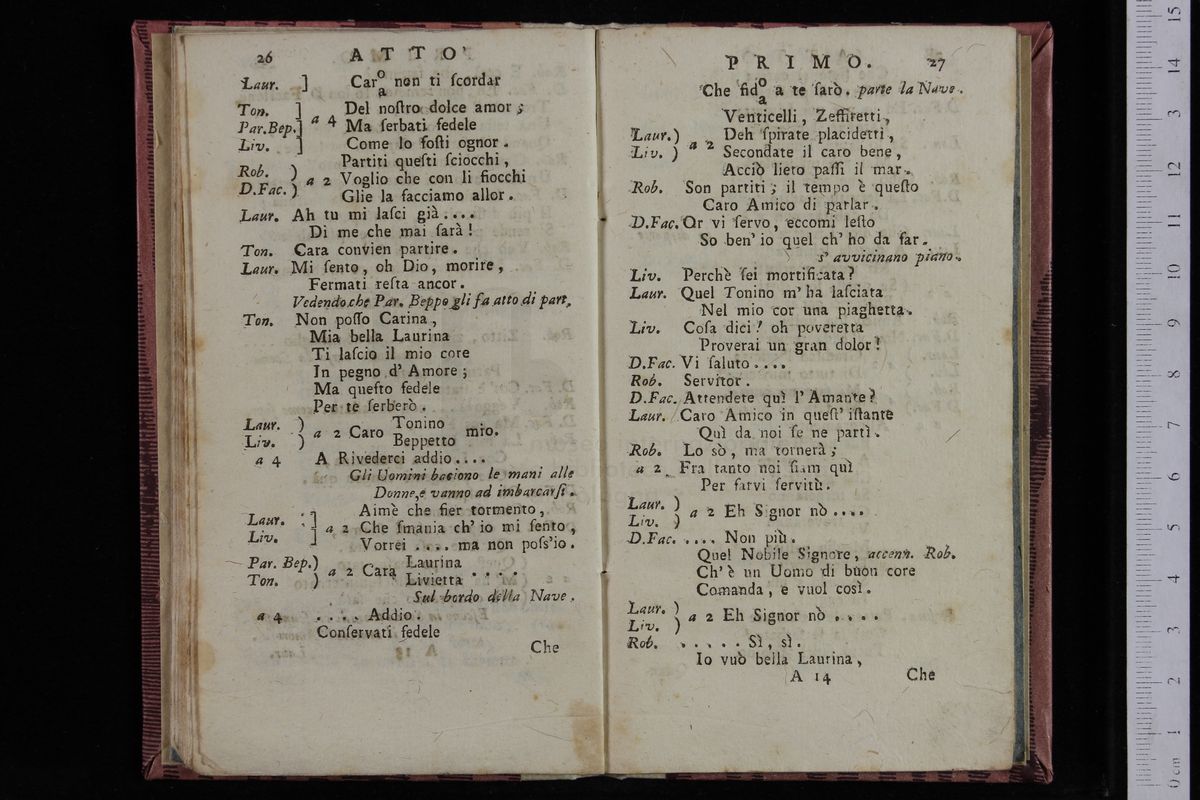 26 ATTO
Laur. ] Car o/a non ti ſcordar
Ton. ] Del noſtro dolce amor ;
Par.Bep.] a 4 Ma ſerbati fedele
Liv. ] Come lo foſti ognor .
Partiti queſti ſciocchi ,
Rob. ) a 2 Voglio che con li fiocchi
D.Fac. ) Glie la facciamo allor .
Laur. Ah tu mi laſci già . . . .
Di me che mai ſarà !
Ton. Cara convien partire .
Laur. Mi ſento , oh Dio , morire ,
Fermati reſta ancor .
Vedendo che Par. Beppo gli fa atto di part.
Ton. Non poſſo Carina ,
Mia bella Laurina
Ti laſcio il mio core
In pegno d' Amore ;
Ma queſto fedele
Per te ſerberò .
Laur. ) Tonino
a 2 Caro mio.
Liv. ) Beppetto
a 4 A Rivederci addio . . . .
Gli Uomini baciono le mani alle
Donne, e vanno ad imbarcarſi .
Laur. ] Aimè che fier tormento ,
a 2 Che ſmania ch' io mi ſento ,
Liv. ] Vorrei . . . . ma non poſs'io .
Par. Bep.) Laurina
a 2 Cara . . . .
Ton. ) Livietta
Sul bordo della Nave .
a 4 . . . . Addio .
Conſervati fedele
Che
PRIMO. 27
Che fid o/a a te ſarò . parte la Nave .
Venticelli , Zeffiretti ,
Laur.) Deh ſpirate placidetti ,
Liv. ) a 2 Secondate il caro bene ,
Acciò lieto paſſi il mar .
Rob. Son partiti ; il tempo è queſto
Caro Amico di parlar .
D.Fac. Or vi ſervo , eccomi leſto
So ben' io quel ch' ho da far .
s' avvicinano piano .
Liv. Perchè ſei mortificata ?
Laur. Quel Tonino m' ha laſciata
Nel mio cor una piaghetta .
Liv. Coſa dici ! oh poveretta
Proverai un gran dolor !
D.Fac. Vi ſaluto . . . .
Rob. Servitor .
D.Fac. Attendete quì l' Amante ?
Laur. Caro Amico in queſt' iſtante
Quì da noi ſe ne partì .
Rob. Lo sò , ma tornerà ;
a 2 Fra tanto noi ſiam quì
Per farvi ſervitù .
Laur. )
a 2 Eh Signor nò . . . .
Liv. )
D.Fac. . . . . Non più .
Quel Nobile Signore , accenn. Rob.
Ch' è un Uomo di buon core
Comanda , e vuol così .
Laur. )
a 2 Eh Signor nò . . . .
Liv. )
Rob. . . . . . Sì , sì .
Io vuò bella Laurina ,
A 14 Che
0 cm 1 2 3 4 5 6 7 8 9 10 11 12 13 14 15